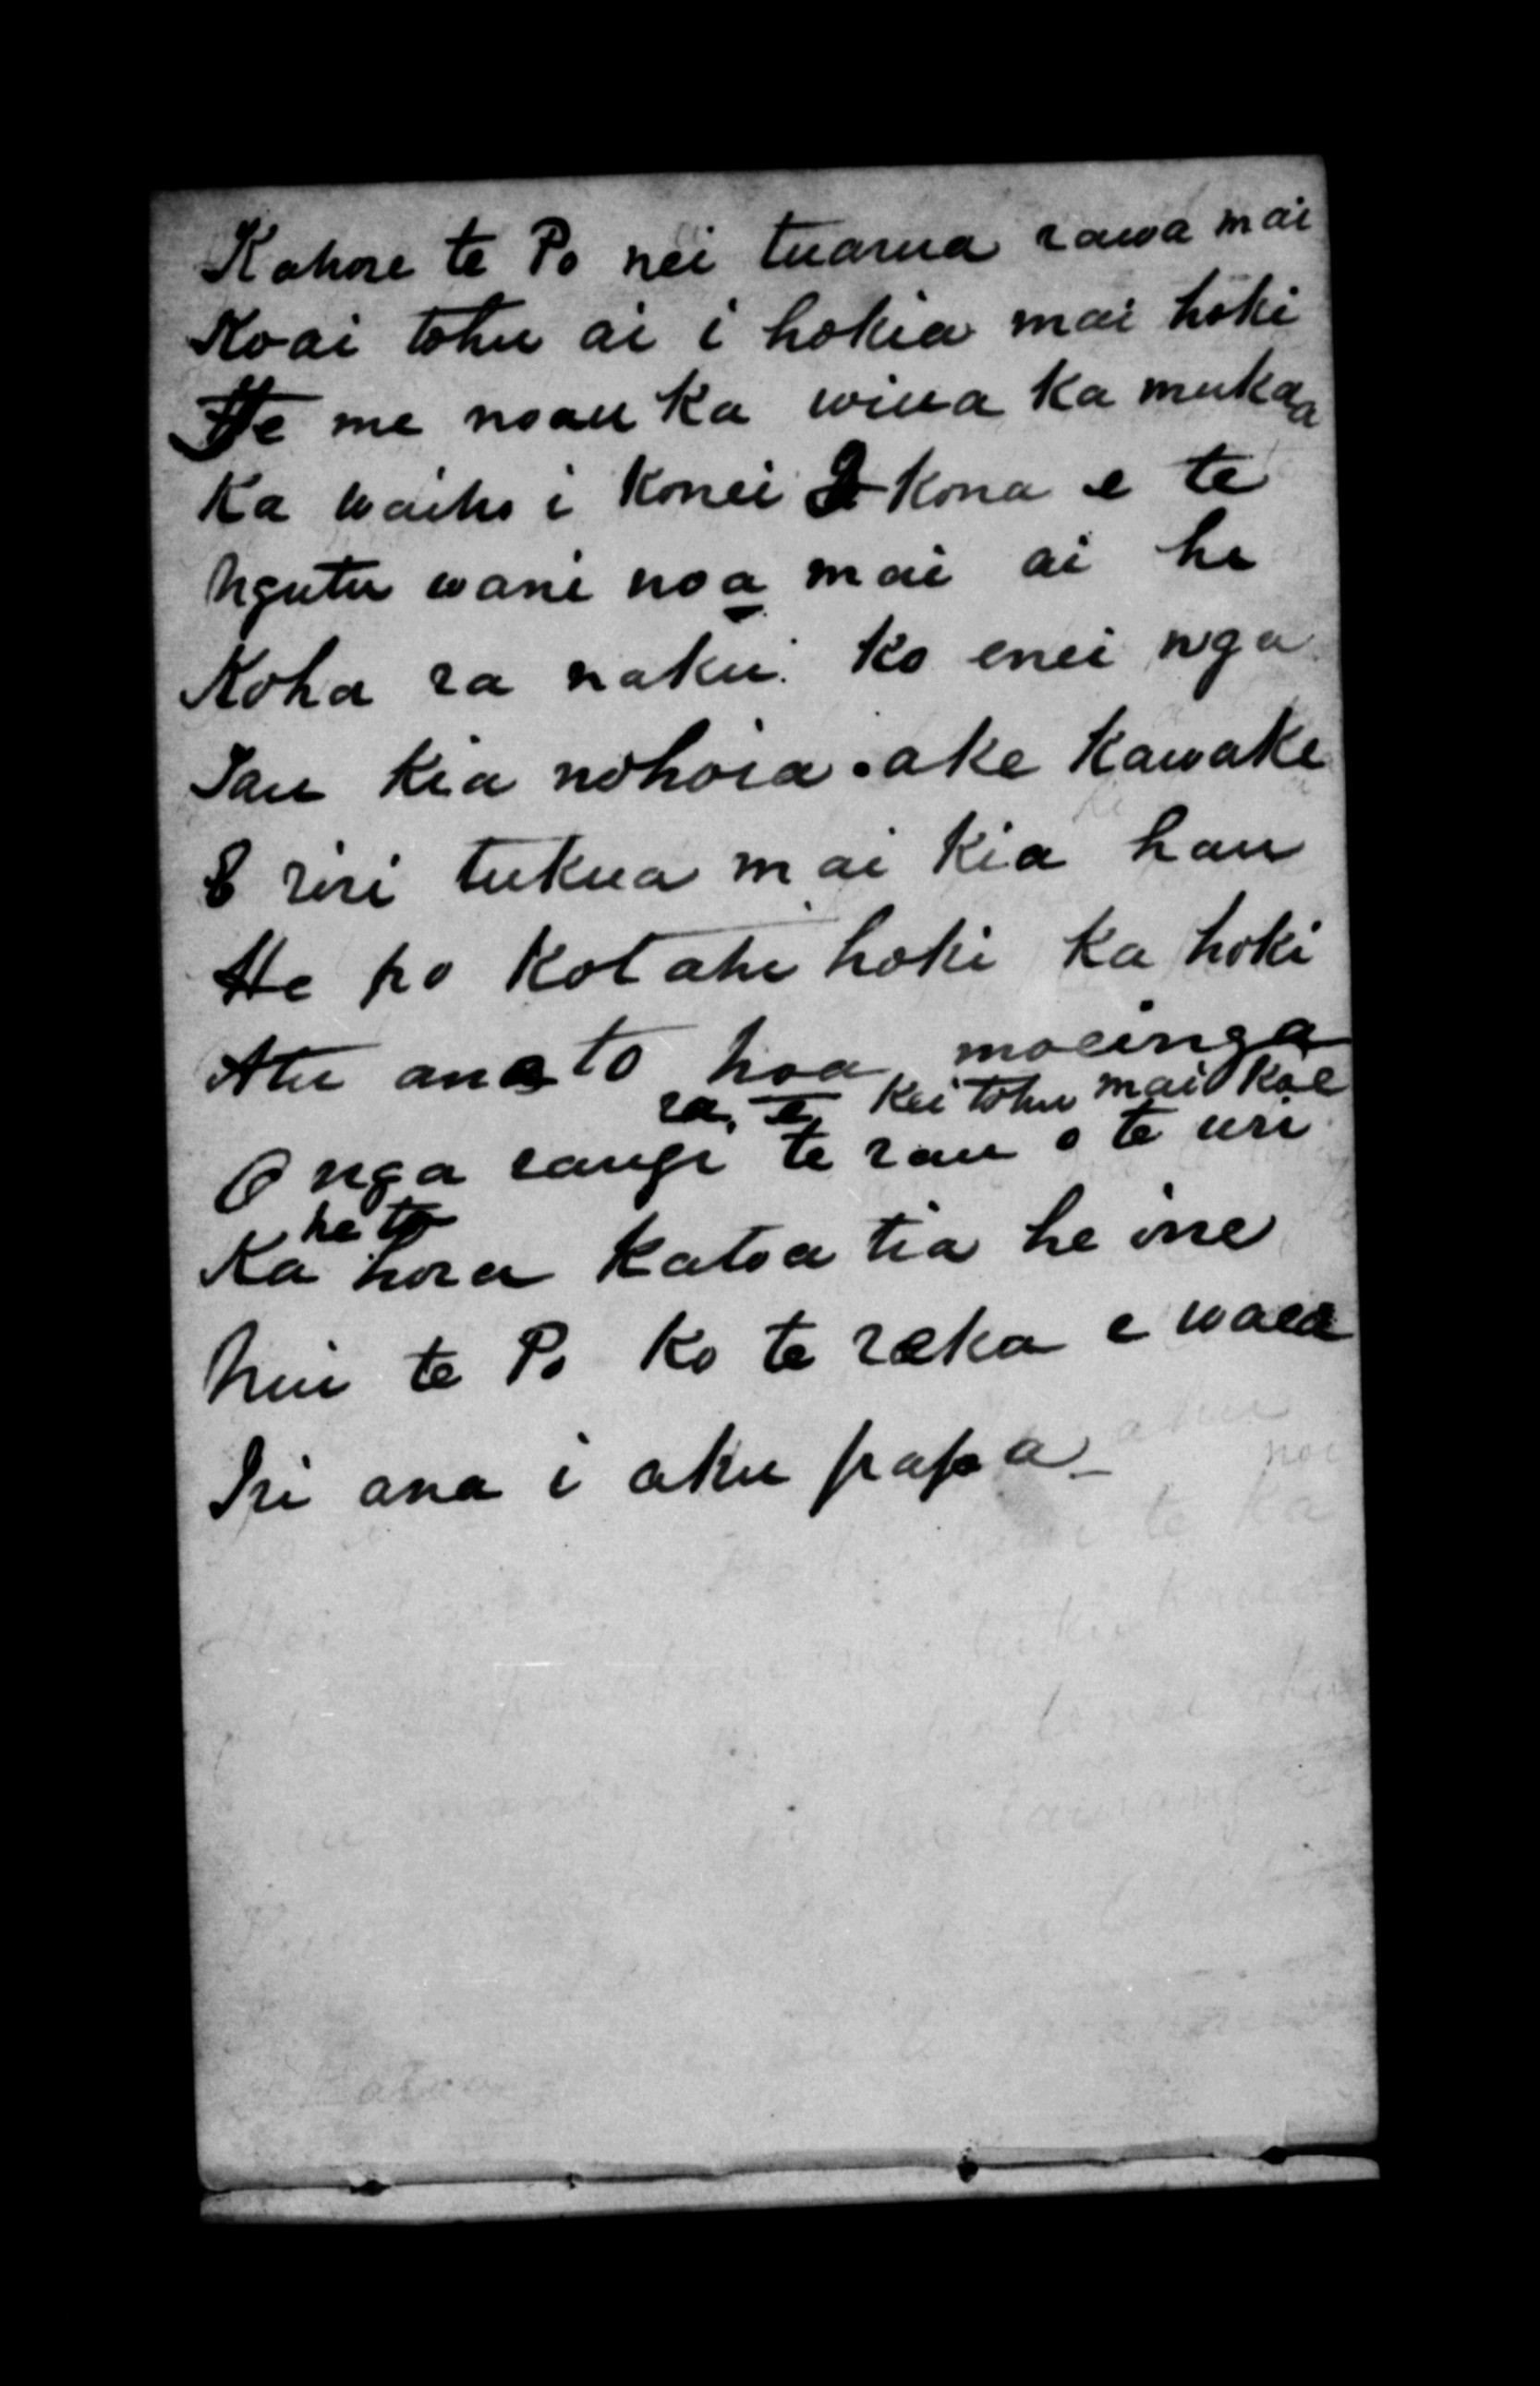 Kahore te Po nei tuarua rawa mai
Koai tohu ai i hokia mai hoki
He me noau ka wiua ka mukaa
Ka waiho i konei kona e te
Ngutu wani noa mai ai he
Koha ra naku. Ko enei nga
Tau kia nohoia ake kawake
E riri tukua mai kia hau
He po kotahi hoki ka hoki
Atu ana to hoa moeinga
ra, e, kei tohu mai koe
O nga rangi te rau o te uri
he to
Ka hora katoa tia he ine
Nui te Po ko te raka e waea
Iri ana i aku papa